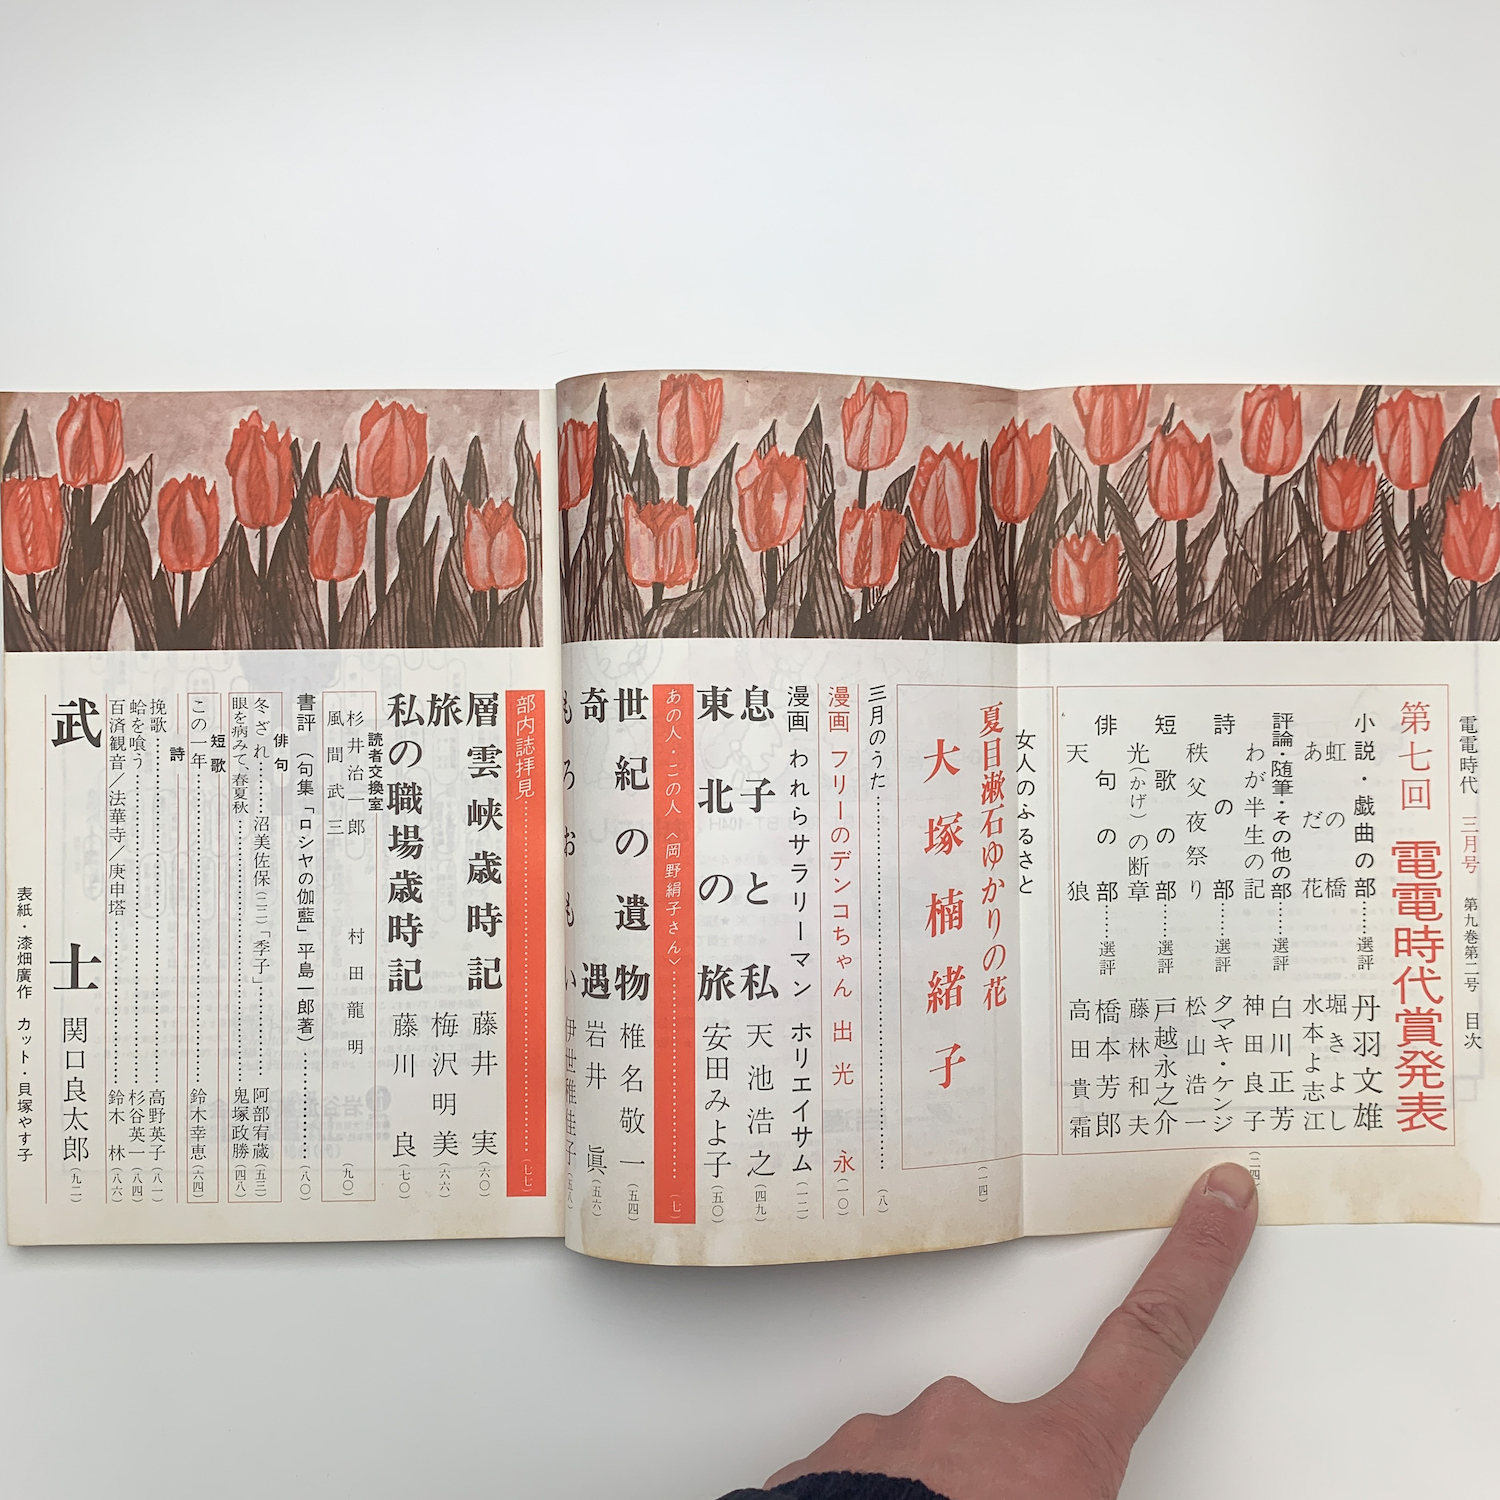 電電時代 三月号 第九巻第二号 目次
第七回 電電時代賞発表
小説・戯曲の部……選評 丹羽文雄
虹の橋 堀きよし
あだ花 水本よ志江
評論・随筆・その他の部……選評 白川正芳
わが半生の記 神田良子
詩の部……選評 タマキ・ケンジ
秩父夜祭り 松山浩一
短歌の部……選評 戸越永之介
光(かげ)の断章 藤林和夫
俳句の部……選評 橋本芳郎
天狼 高田貴霜
女人のふるさと
夏目漱石ゆかりの花
大塚楠緒子 (一四)
三月のうた (八)
漫画 フリーのデンコちゃん 出光永 (一〇)
漫画 われらサラリーマン ホリエイサム (一二)
息子と私 天池浩之 (四九)
東北の旅 安田みよ子 (五〇)
あの人・この人〈岡野絹子さん〉 (七)
世紀の遺物 椎名敬一 (五四)
奇遇 岩井眞 (五六)
もろおもい 伊世稚佳子 (五八)
部内誌拝見 (七七)
層雲峡歳時記 藤井実 (六〇)
旅 梅沢明美 (六六)
私の職場歳時記 藤川良 (七〇)
読者交換室
杉井治一郎 村田龍明
風間武三 (九〇)
書評(句集「ロシヤの伽藍」平島一郎著) (八〇)
俳句
冬ざれ……沼美佐保(二二)「季子」 阿部宥蔵 (五三)
眼を病みて、春夏秋 鬼塚政勝 (四八)
短歌
この一年 鈴木幸恵 (六四)
詩
挽歌 高野英子 (八一)
蛤を喰う 杉谷英一 (八四)
百済観音/法華寺/庚申塔 鈴木林 (八六)
武士 関口良太郎 (九二)
表紙・漆畑廣作 カット・貝塚やす子